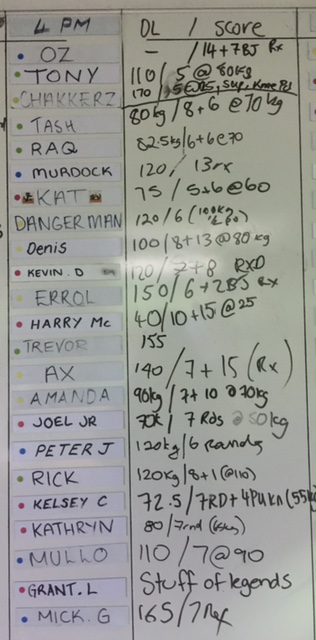 4 PM DL / score
OZ – / 14+7BJ Rx
TONY 110 / 5 @ 80kg
CHAKKERZ 170 / 5 @ 25, Sup, Knee
TASH 80kg / 8+6 @ 70kg
RAQ 82.5kg / 6+6 @ 70
MURDOCK 120 / 13rx
KAT 75 / 5+6 @ 60
DANGERMAN 120 / 6 (100kg
Denis 100 / 8+13 @ 80 kg
KEVIN. D 120 / 7+8 RXD
ERROL 150 / 6+2BJ Rx
HARRY Mc 40 / 10+15 @ 25
TREVOR 155
AX 140 / 7+15 (Rx)
AMANDA 90kg / 7+10 @ 70kg
JOEL JR 70k / 7 Rds @ 50kg
PETER J 120kg / 6 rounds
RICK 120kg / 8+1 (@110)
KELSEY C 72.5 / 7RD + 4PUKN (55kg
KATHRYN 80 / 7rnd (65kg)
MULLO 110 / 7 @ 90
GRANT. L Stuff of legends
MICK. G 165 / 7 Rx